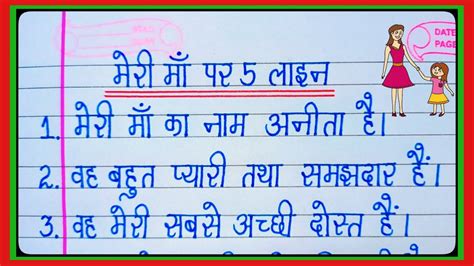 DATE
PAGE
मेरी माँ पर 5 लाइन
1. मेरी माँ का नाम अनीता है।
2. वह बहुत प्यारी तथा समझदार हैं।
3. वह मेरी सबसे अच्छी दोस्त हैं।